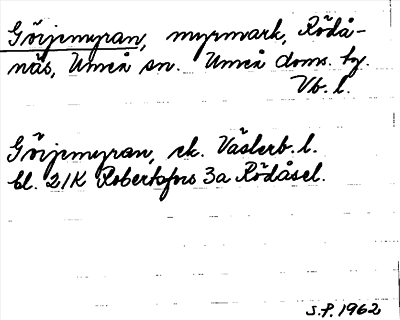 Görjemyran, myrmark, Rödå-
näs, Umeå sn. Umeå doms. by.
Vb. l.
Görjemyran, ek. Västerb. l.
bl. 21K Robertsfors 3a Rödåsel.
S.P. 1962